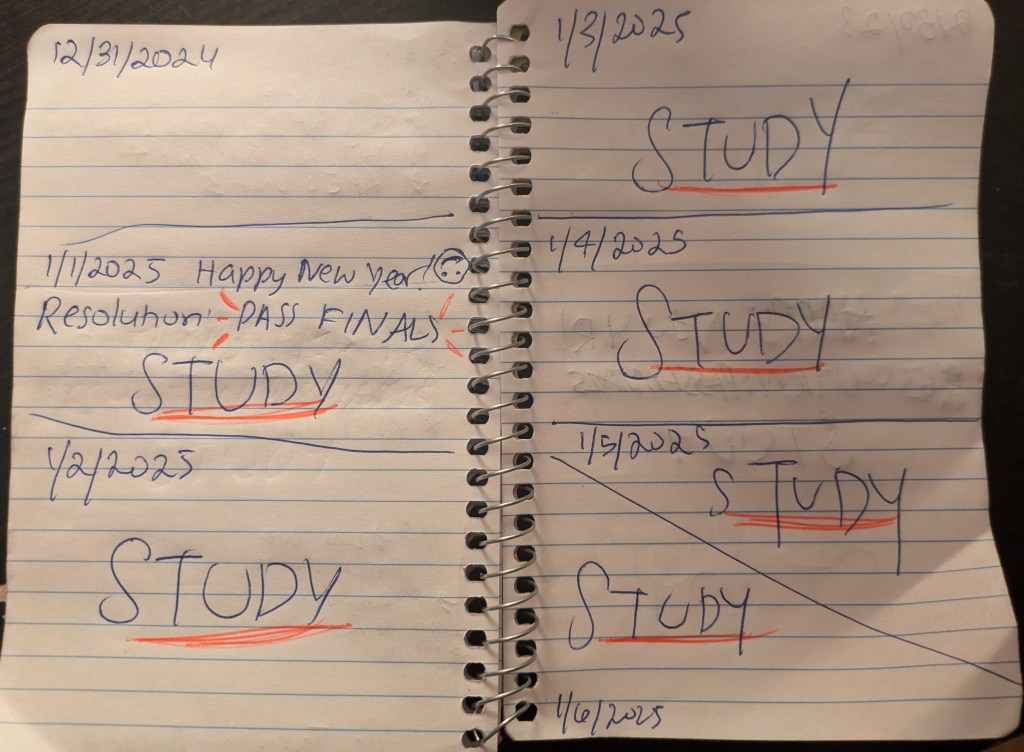 12/31/2024
1/1/2025 Happy New Year!
Resolution: PASS FINALS
STUDY
1/2/2025
STUDY
1/3/2025
STUDY
1/4/2025
STUDY
1/5/2025
STUDY
STUDY
1/6/2025